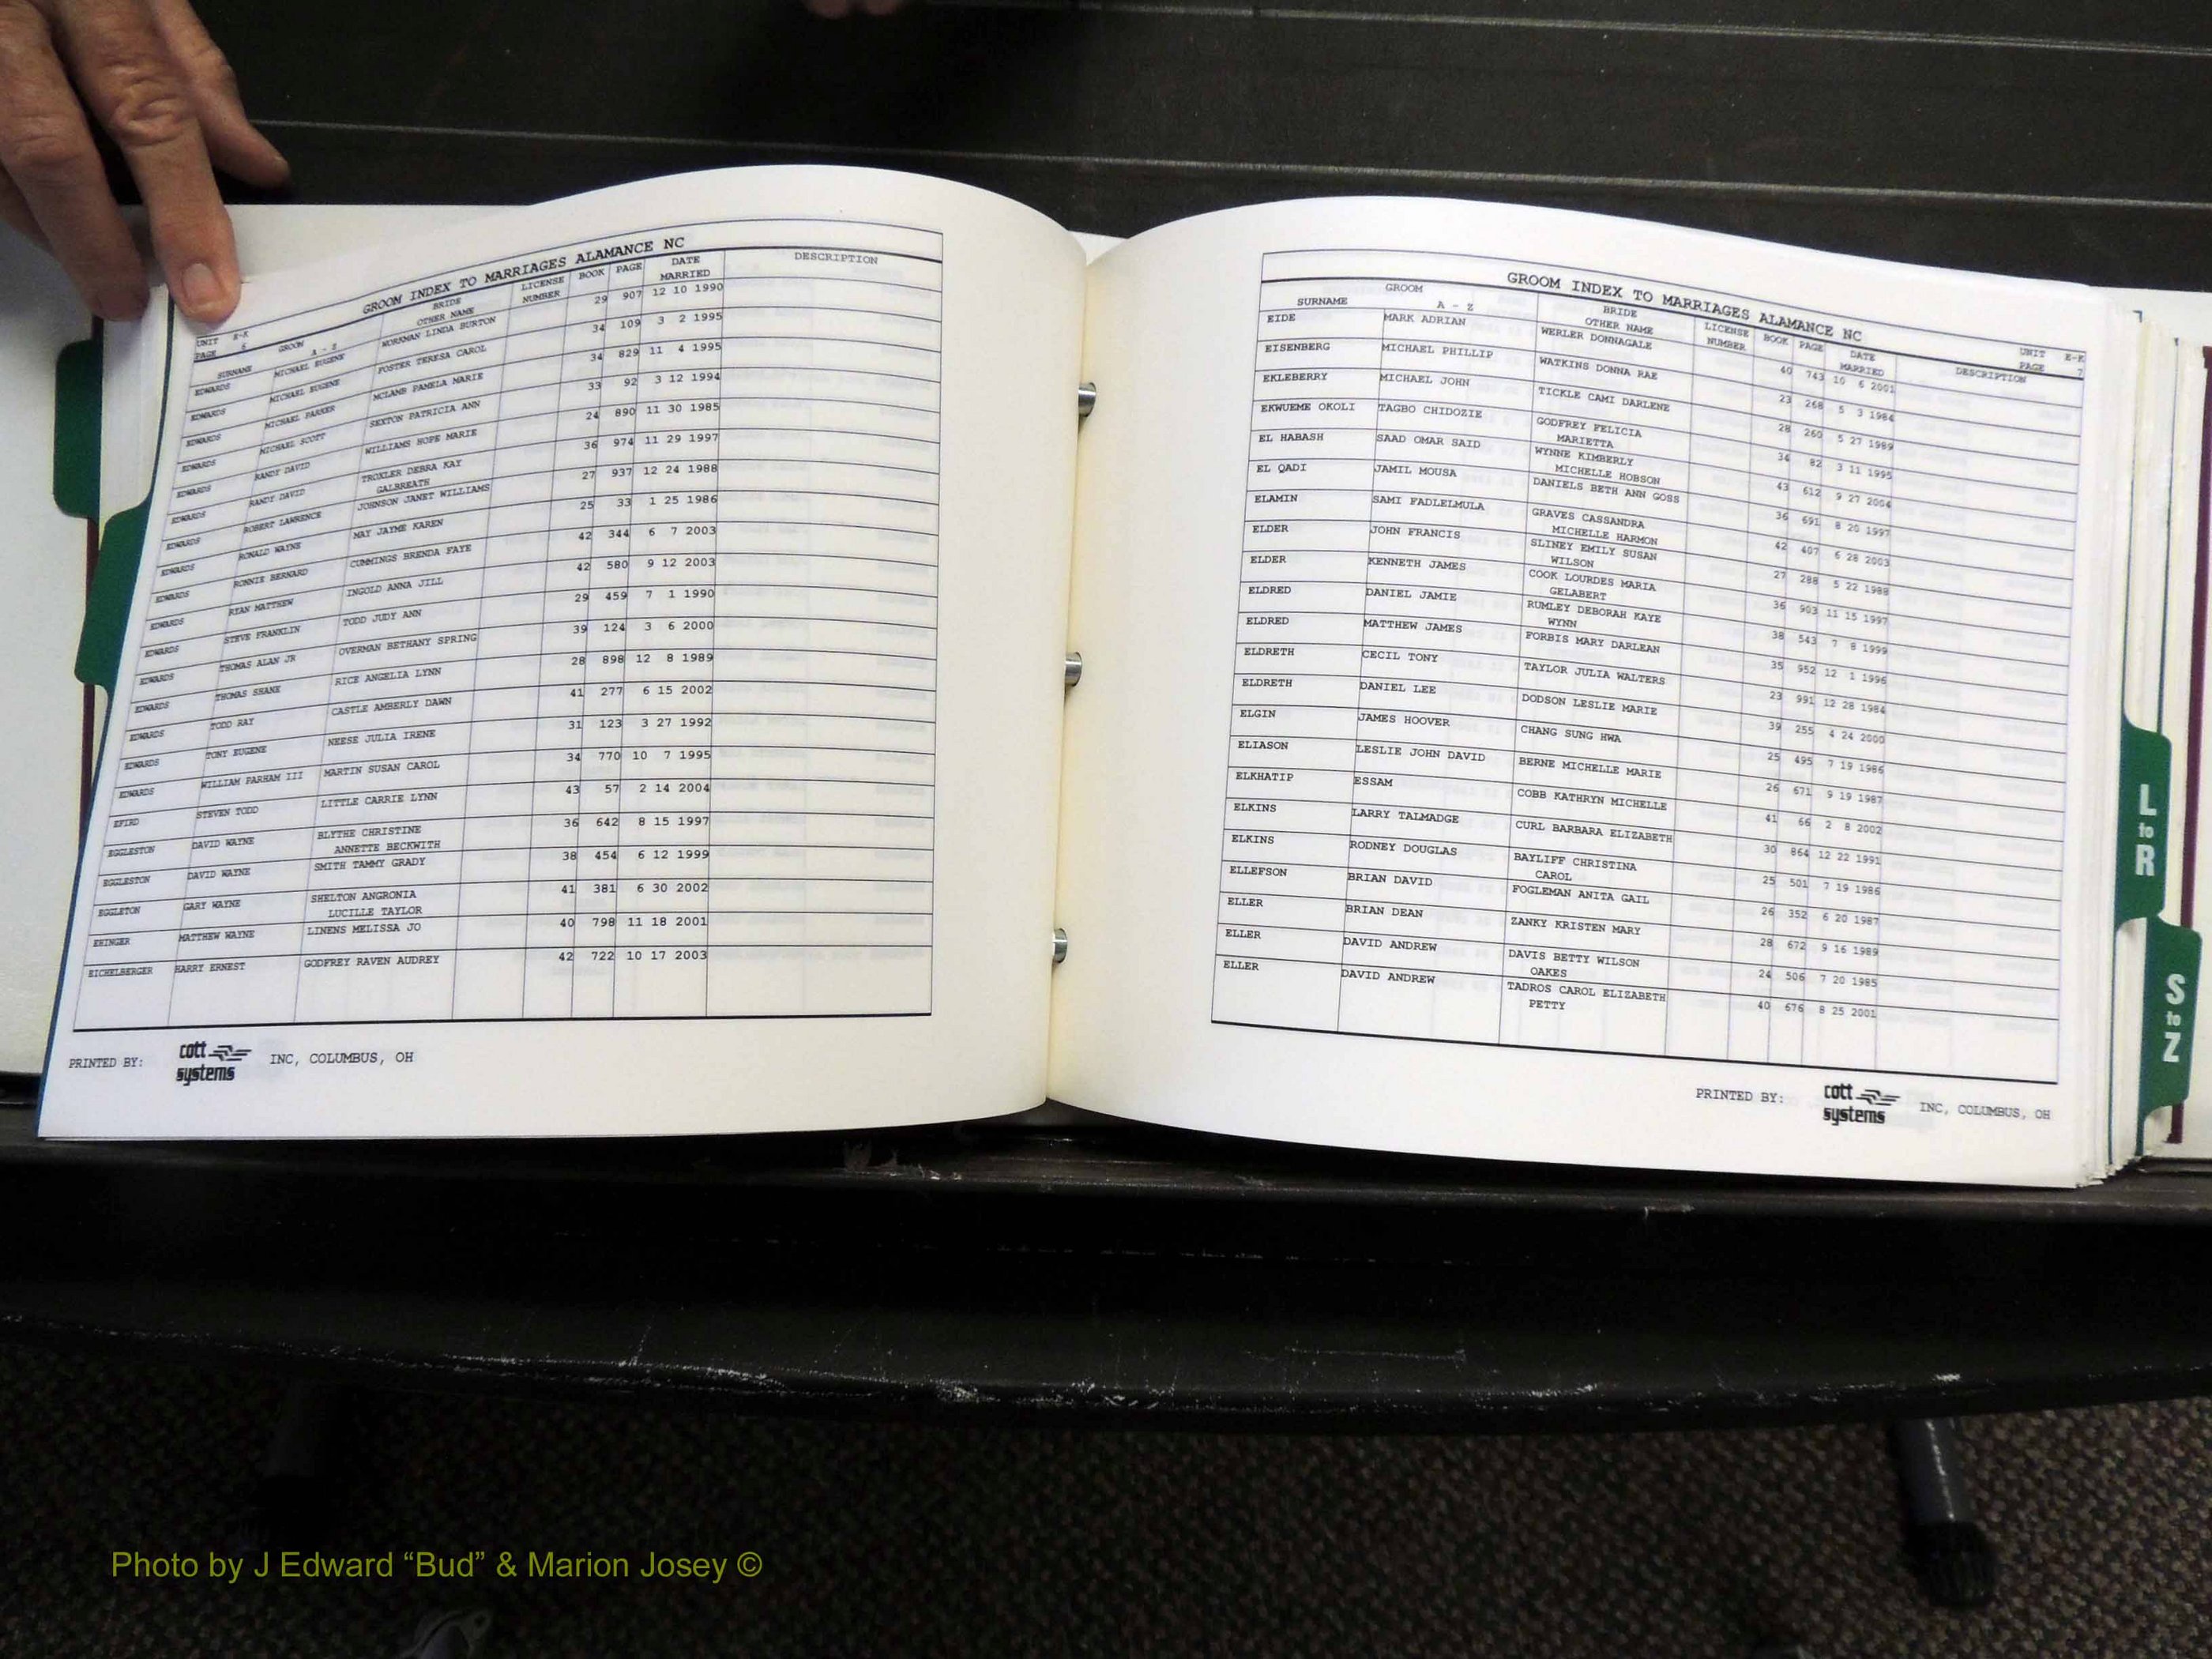 GROOM INDEX TO MARRIAGES ALAMANCE NC
UNIT E-K
PAGE 6
SURNAME GROOM A - Z BRIDE OTHER NAME LICENSE NUMBER BOOK PAGE DATE MARRIED DESCRIPTION
EDWARDS MICHAEL EUGENE NORMAN LINDA BURTON 29 907 12 10 1990
EDWARDS MICHAEL EUGENE FOSTER TERESA CAROL 34 109 3 2 1995
EDWARDS MICHAEL PARKER MCLAMB PAMELA MARIE 34 829 11 4 1995
EDWARDS MICHAEL SCOTT SEXTON PATRICIA ANN 33 92 3 12 1994
EDWARDS RANDY DAVID WILLIAMS HOPE MARIE 24 890 11 30 1985
EDWARDS RANDY DAVID TROXLER DEBRA KAY 36 974 11 29 1997
GALBREATH
EDWARDS ROBERT LAWRENCE JOHNSON JANET WILLIAMS 27 937 12 24 1988
EDWARDS RONALD WAYNE MAY JAYME KAREN 25 33 1 25 1986
EDWARDS RONNIE BERNARD CUMMINGS BRENDA FAYE 42 344 6 7 2003
EDWARDS RYAN MATTHEW INGOLD ANNA JILL 42 580 9 12 2003
EDWARDS STEVE FRANKLIN TODD JUDY ANN 29 459 7 1 1990
EDWARDS THOMAS ALAN JR OVERMAN BETHANY SPRING 39 124 3 6 2000
EDWARDS THOMAS SHANE RICE ANGELIA LYNN 28 898 12 8 1989
EDWARDS TODD RAY CASTLE AMBERLY DAWN 41 277 6 15 2002
EDWARDS TONY EUGENE NEESE JULIA IRENE 31 123 3 27 1992
EDWARDS WILLIAM PARHAM III MARTIN SUSAN CAROL 34 770 10 7 1995
EFIRD STEVEN TODD LITTLE CARRIE LYNN 43 57 2 14 2004
EGGLESTON DAVID WAYNE BLYTHE CHRISTINE 36 642 8 15 1997
ANNETTE BECKWITH
EGGLESTON DAVID WAYNE SMITH TAMMY GRADY 38 454 6 12 1999
EGGLETON GARY WAYNE SHELTON ANGRONIA 41 381 6 30 2002
LUCILLE TAYLOR
EHINGER MATTHEW WAYNE LINENS MELISSA JO 40 798 11 18 2001
EICHELBERGER HARRY ERNEST GODFREY RAVEN AUDREY 42 722 10 17 2003
PRINTED BY: cott systems INC, COLUMBUS, OH
GROOM INDEX TO MARRIAGES ALAMANCE NC
UNIT E-K
PAGE 7
SURNAME GROOM A - Z BRIDE OTHER NAME LICENSE NUMBER BOOK PAGE DATE MARRIED DESCRIPTION
EIDE MARK ADRIAN WERLER DONNAGALE 40 743 10 6 2001
EISENBERG MICHAEL PHILLIP WATKINS DONNA RAE 23 268 5 3 1984
EKLEBERRY MICHAEL JOHN TICKLE CAMI DARLENE 28 260 5 27 1989
EKWUEME OKOLI TAGBO CHIDOZIE GODFREY FELICIA 34 82 3 11 1995
MARIETTA
EL HABASH SAAD OMAR SAID WYNNE KIMBERLY 43 612 9 27 2004
MICHELLE HOBSON
EL QADI JAMIL MOUSA DANIELS BETH ANN GOSS 36 691 8 20 1997
ELAMIN SAMI FADLELMULA GRAVES CASSANDRA 42 407 6 28 2003
MICHELLE HARMON
ELDER JOHN FRANCIS SLINEY EMILY SUSAN 27 288 5 22 1988
WILSON
ELDER KENNETH JAMES COOK LOURDES MARIA 36 903 11 15 1997
GELABERT
ELDRED DANIEL JAMIE RUMLEY DEBORAH KAYE 38 543 7 8 1999
WYNN
ELDRED MATTHEW JAMES FORBIS MARY DARLEAN 35 952 12 1 1996
ELDRETH CECIL TONY TAYLOR JULIA WALTERS 23 991 12 28 1984
ELDRETH DANIEL LEE DODSON LESLIE MARIE 39 255 4 24 2000
ELGIN JAMES HOOVER CHANG SUNG HWA 25 495 7 19 1986
ELIASON LESLIE JOHN DAVID BERNE MICHELLE MARIE 26 671 9 19 1987
ELKHATIP ESSAM COBB KATHRYN MICHELLE 41 66 2 8 2002
ELKINS LARRY TALMADGE CURL BARBARA ELIZABETH 30 864 12 22 1991
ELKINS RODNEY DOUGLAS BAYLIFF CHRISTINA 25 501 7 19 1986
CAROL
ELLEFSON BRIAN DAVID FOGLEMAN ANITA GAIL 26 352 6 20 1987
ELLER BRIAN DEAN ZANKY KRISTEN MARY 28 672 9 16 1989
ELLER DAVID ANDREW DAVIS BETTY WILSON 24 506 7 20 1985
OAKES
ELLER DAVID ANDREW TADROS CAROL ELIZABETH 40 676 8 25 2001
PETTY
PRINTED BY: cott systems INC, COLUMBUS, OH
L to R
S to Z
Photo by J Edward “Bud” & Marion Josey ©